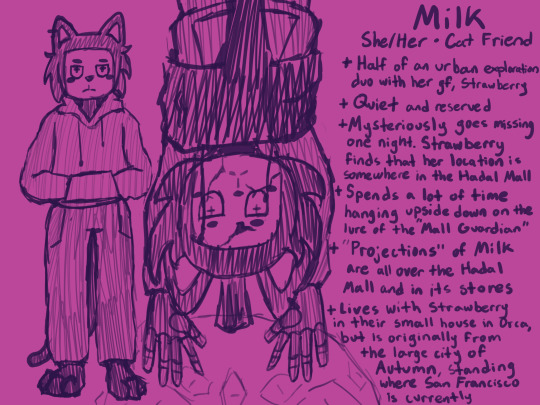 Milk
She/Her • Cat Friend
+ Half of an urban exploration
duo with her gf, Strawberry
+ Quiet and reserved
+ Mysteriously goes missing
one night. Strawberry
finds that her location is
somewhere in the Hadal Mall
+ Spends a lot of time
hanging upside down on the
lure of the "Mall Guardian"
+ "Projections" of Milk
are all over the Hadal
Mall and in its stores
+ Lives with Strawberry
in their small house in Orca,
but is originally from
the large city of
Autumn, standing
where San Francisco
is currently